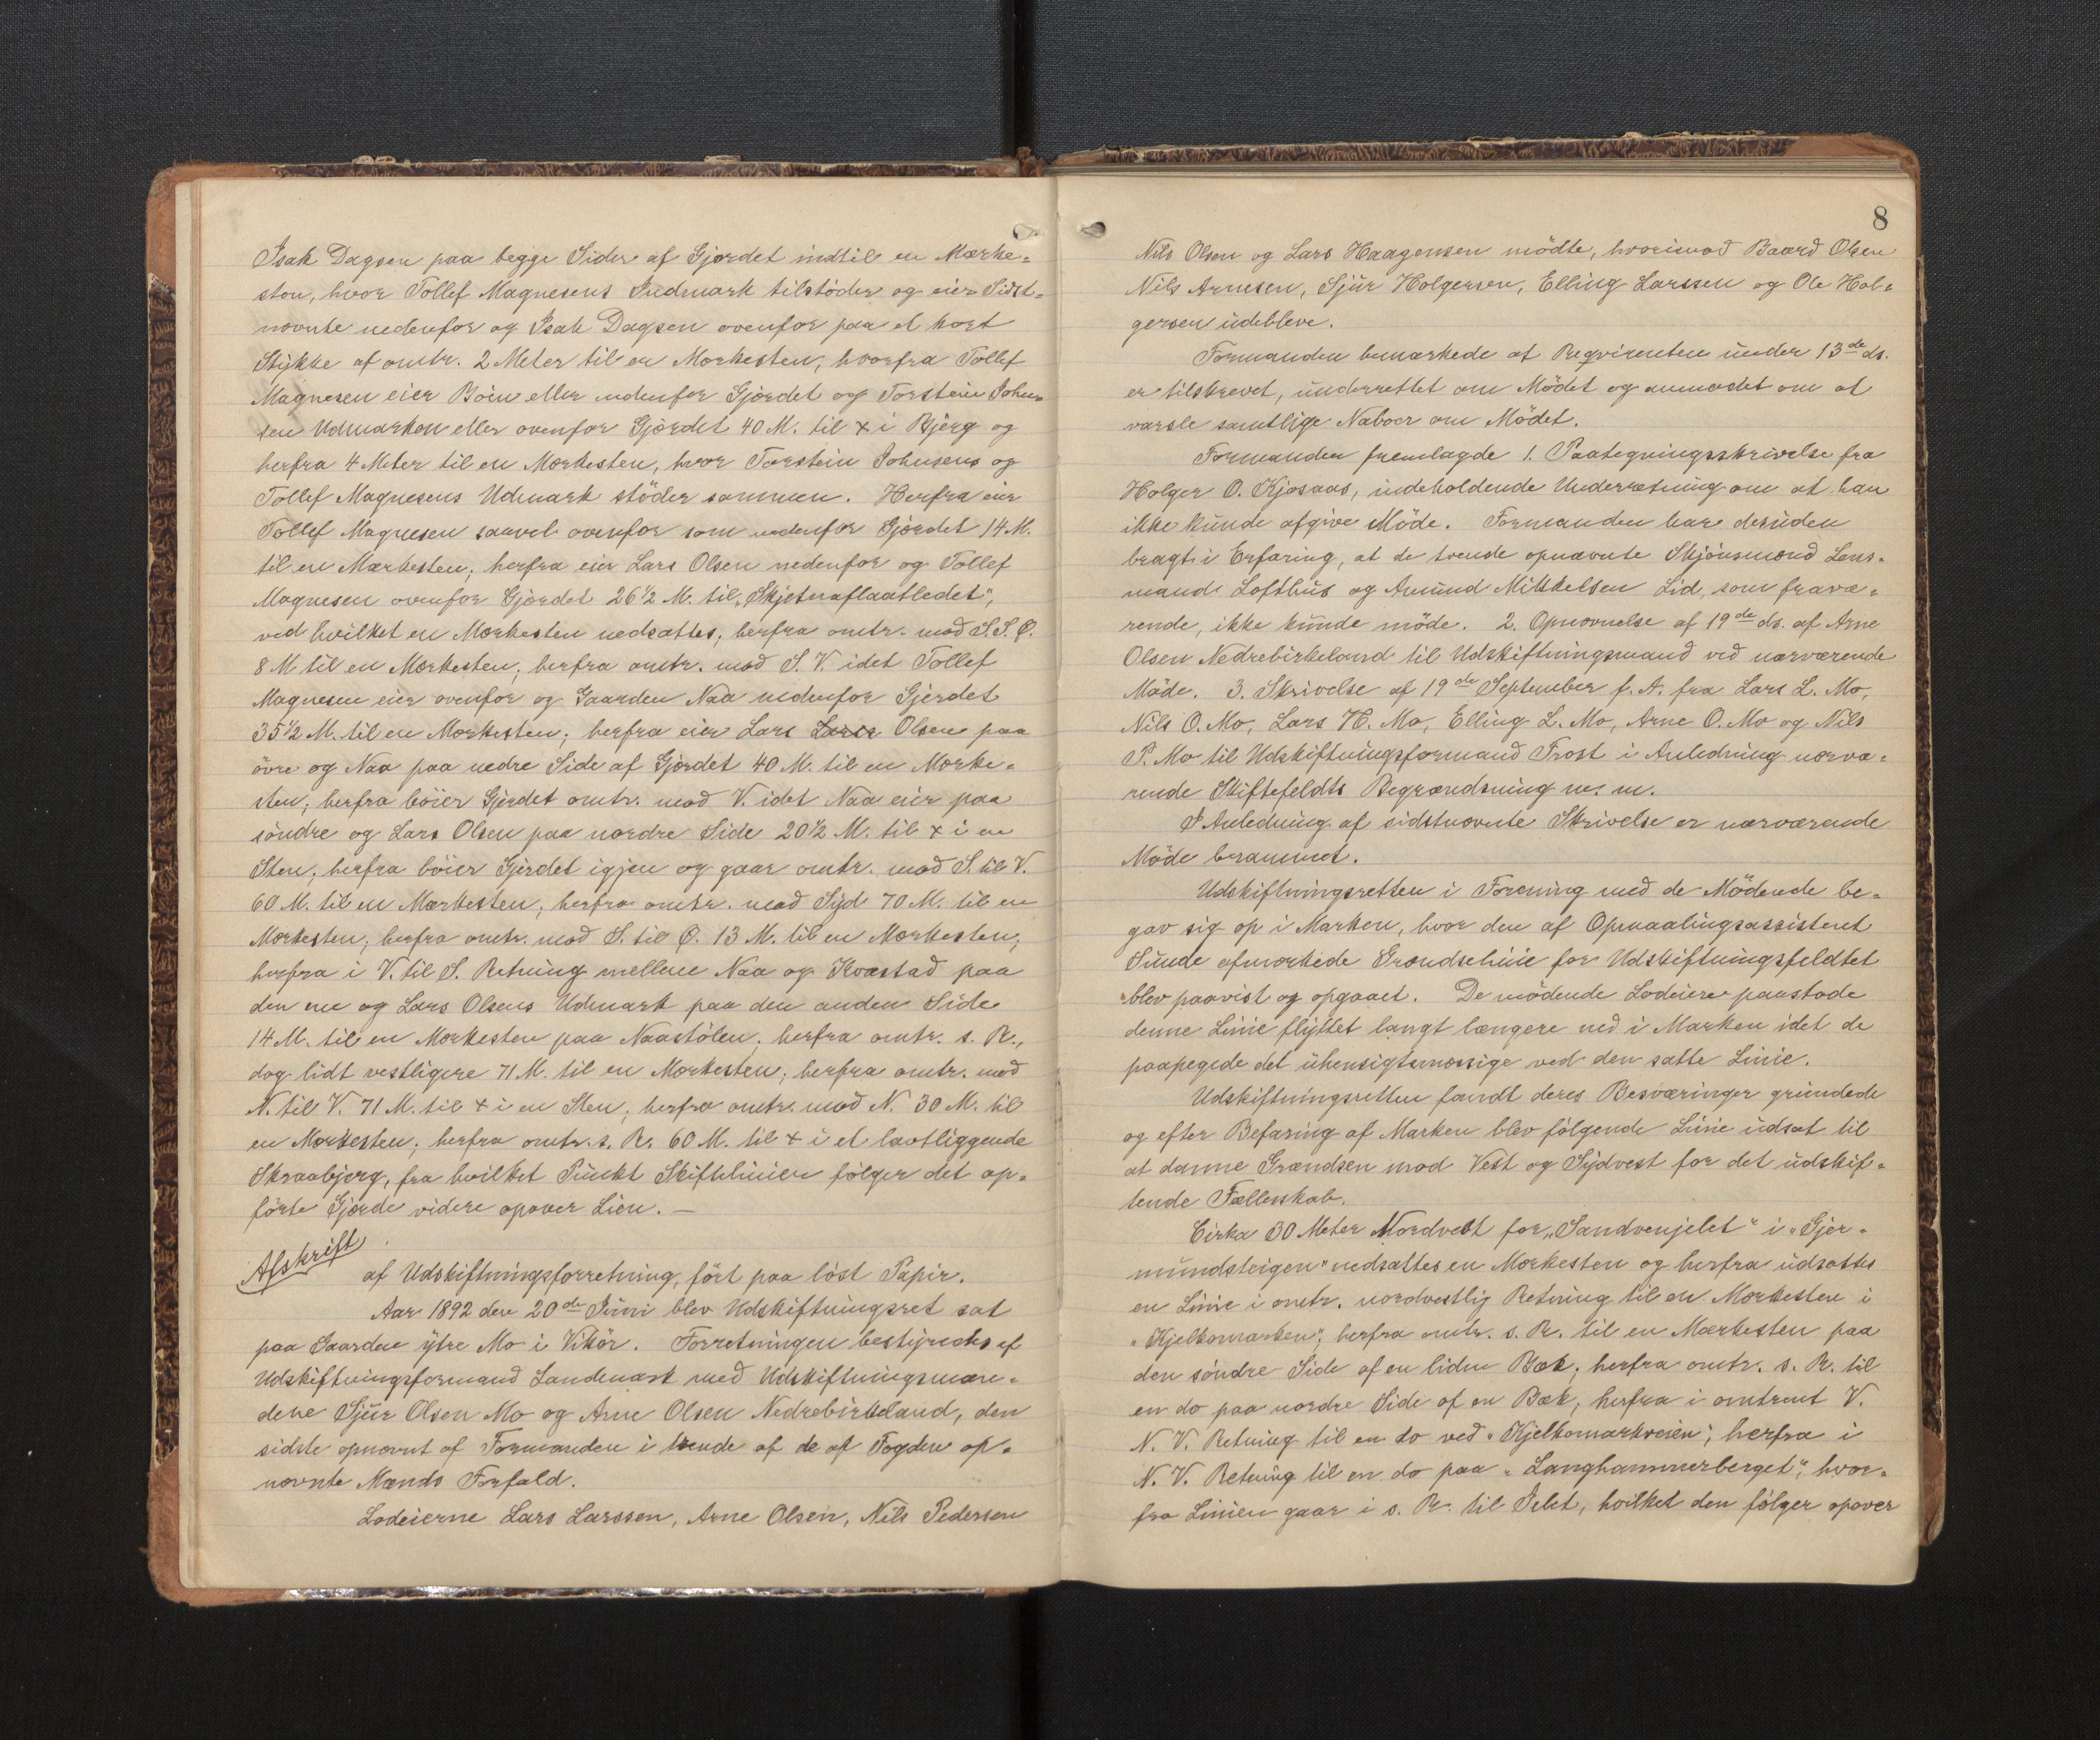 Isak Dagsen paa begge Sider af Gjærdet indtil en Mærke-
sten, hvor Tollef Magnesens Indmark tilstöder og eier Sidst-
nævnte nedenfor og Isak Dagsen ovenfor paa et kort
Stykke af omtr. 2 Meter til en Mærkesten, hvorfra Tollef
Magnesen eier Böen eller nedenfor Gjærdet og Torstein Johns-
sen Udmarken eller ovenfor Gjærdet 40 M. til x i Bjerg og
herfra 4 Meter til en Mærkesten, hvor Torstein Johnsens og
Tollef Magnesens Udmark stöder sammen. Herfra eier
Tollef Magnesen saavel ovenfor som nedenfor Gjærdet 14 M.
til en Mærkesten; herfra eier Lars Olsen nedenfor og Tollef
Magnesen ovenfor Gjærdet 26 1/2 M. til „Skjetnaflaatledet",
ved hvilket en Mærkesten nedsattes, herfra omtr. mod S.S.Ø.
8 M til en Mærkesten; herfra omtr. mod S.V. idet Tollef
Magnesen eier ovenfor og Gaarden Naa nedenfor Gjerdet
35 1/2 M. til en Mærkesten; herfra eier Lars Olsen paa
övre og Naa paa nedre Side af Gjærdet 40 M. til en Mærke-
sten; herfra böier Gjerdet omtr. mod V. idet Naa eier paa
söndre og Lars Olsen paa nordre Side 20 1/2 M. til x i en
Sten; herfra böier Gjerdet igjen og gaar omtr. mod S. til V.
60 M. til en Mærkesten; herfra omtr. mod Syd 70 M. til en
Mærkesten; herfra omtr. mod S. til Ø. 13 M. til en Mærkesten;
herfra i V. til S. Retning mellem Naa og Kvæstad paa
den ene og Lars Olsens Udmark paa den anden Side
14 M. til en Mærkesten paa Naastölen; herfra omtr. s. R.,
dog lidt vestligere 71 M. til en Mærkesten; herfra omtr. mod
N. til V. 71 M. til x i en Sten; herfra omtr. mod N. 30 M. til
en Mærkesten; herfra omtr. s. R. 60 M. til x i et lavtliggende
Skraabjerg, fra hvilket Punkt Skiftelinien fölger det op-
förte Gjærde videre opover Lien. —
Afskrift
af Udskiftningsforretning, fört paa löst Papir.
Aar 1892 den 20de Juni blev Udskiftningsret sat
paa Gaarden ytre Mo i Vikör. Forretningen bestyredes af
Udskiftningsformand Landmark med Udskiftningsmæn-
dene Sjur Olsen Mo og Arne Olsen Nedrebirkeland, den
sidste opnævnt af Formanden i tvende af de af Fogden op-
nævnte Mænds Forfald.
Lodeierne Lars Larssen, Arne Olsen, Nils Pedersen
8
Nils Olsen og Lars Haagensen mödte, hvorimod Baard Olsen
Nils Arnesen, Sjur Holgersen, Elling Larssen og Ole Hol-
gersen udebleve.
Formanden bemærkede at Reqvirenten under 13de ds.
er tilskrevet, underrettet om Mödet og anmodet om at
varsle samtlige Naboer om Mödet.
Formanden fremlagde 1. Paategningsskrivelse fra
Holger O. Kjosaas, indeholdende Underretning om at han
ikke kunde afgive Möde. Formanden har desuden
bragt i Erfaring, at de tvende opnævnte Skjönsmænd Lens-
mand Lofthus og Amund Mikkelsen Lid, som fravæ-
rende, ikke kunde möde. 2. Opnævnelse af 19de ds. af Arne
Olsen Nedrebirkeland til Udskiftningsmand ved nærværende
Möde. 3. Skrivelse af 19de September f. A. fra Lars L. Mo,
Nils O. Mo, Lars H. Mo, Elling L. Mo, Arne O. Mo og Nils
P. Mo til Udskiftningsformand Frost i Anledning nærvæ-
rende Skiftefeldts Begrændsning m. m.
I Anledning af sidstnævnte Skrivelse er nærværende
Möde berammet.
Udskiftningsretten i Forening med de Mödende be-
gav sig op i Marken, hvor den af Opmaalingsassistent
Sunde afmærkede Grændselinie for Udskiftningsfeldtet
blev paavist og opgaaet. De mödende Lodeiere paastode
denne Linie flyttet langt længere ned i Marken idet de
paapegede det uhensigtsmæssige ved den satte Linie.
Udskiftningsretten fandt deres Besværinger grundede
og efter Befaring af Marken blev fölgende Linie udsat til
at danne Grændsen mod Vest og Sydvest for det udskif-
tende Fællesskab.
Cirka 30 Meter Nordvest for „Sandvenjelet" i „Gjer-
mundsteigen" nedsattes en Mærkesten og herfra udsattes
en Linie i omtr. nordvestlig Retning til en Mærkesten i
„Kjelkomarken"; herfra omtr. s. R. til en Mærkesten paa
den söndre Side af en liden Bæk; herfra omtr. s. R. til
en do paa nordre Side af en Bæk; herfra i omtrent V.
N. V. Retning til en do ved „Kjelkomarkveien"; herfra i
N. V. Retning til en do paa „Langhammerberget", hvor-
fra Linien gaar i s. R. til Jelet, hvilket den fölger opover